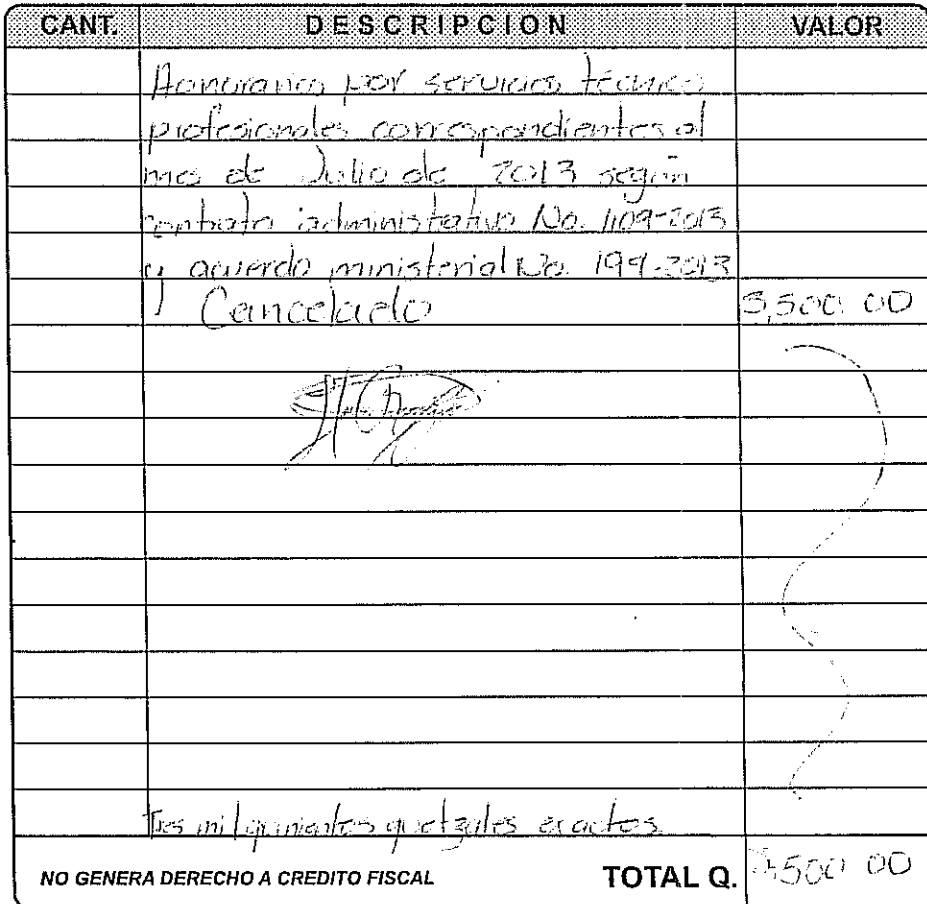 CANT. DESCRIPCION VALOR
Honorarios por servicios técnico
profesionales correspondientes al
mes de Julio de 2013 según
contrato administrativo No. 1109-2013
y acuerdo ministerial No. 199-2013
Cancelado 3,500.00
Tres mil quinientos quetzales exactos
NO GENERA DERECHO A CREDITO FISCAL TOTAL Q. 3,500 00